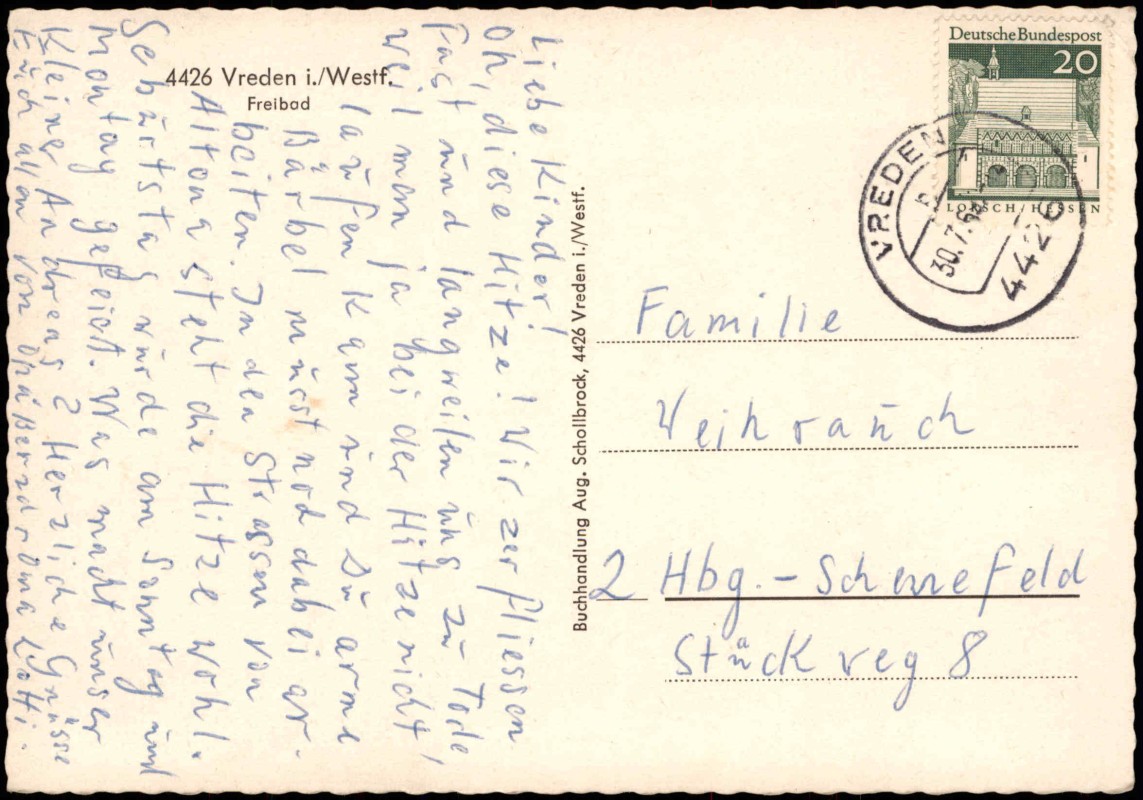 4426 Vreden i./Westf.
Freibad
Liebe Kinder!
Oh, diese Hitze! Wir zerfliessen
fast und langweilen uns zu Tode,
weil man ja bei der Hitze nicht
laufen kann und Du arme
Bärbel musst noch dabei ar-
beiten. In den Strassen von
Altona steht die Hitze wohl.
Geburtstag wurde am Sonntag und
Montag gefeiert. Was macht unser
kleiner Andreas? Herzliche Grüsse
Euch allen von Opa Bernd & Oma Lotti.
Buchhandlung Aug. Schollbrock, 4426 Vreden i./Westf.
Deutsche Bundespost
20
LORSCH/HESSEN
VREDEN
30.7.
4426
Familie
Weihrauch
2 Hbg.-Schenefeld
Stückweg 8